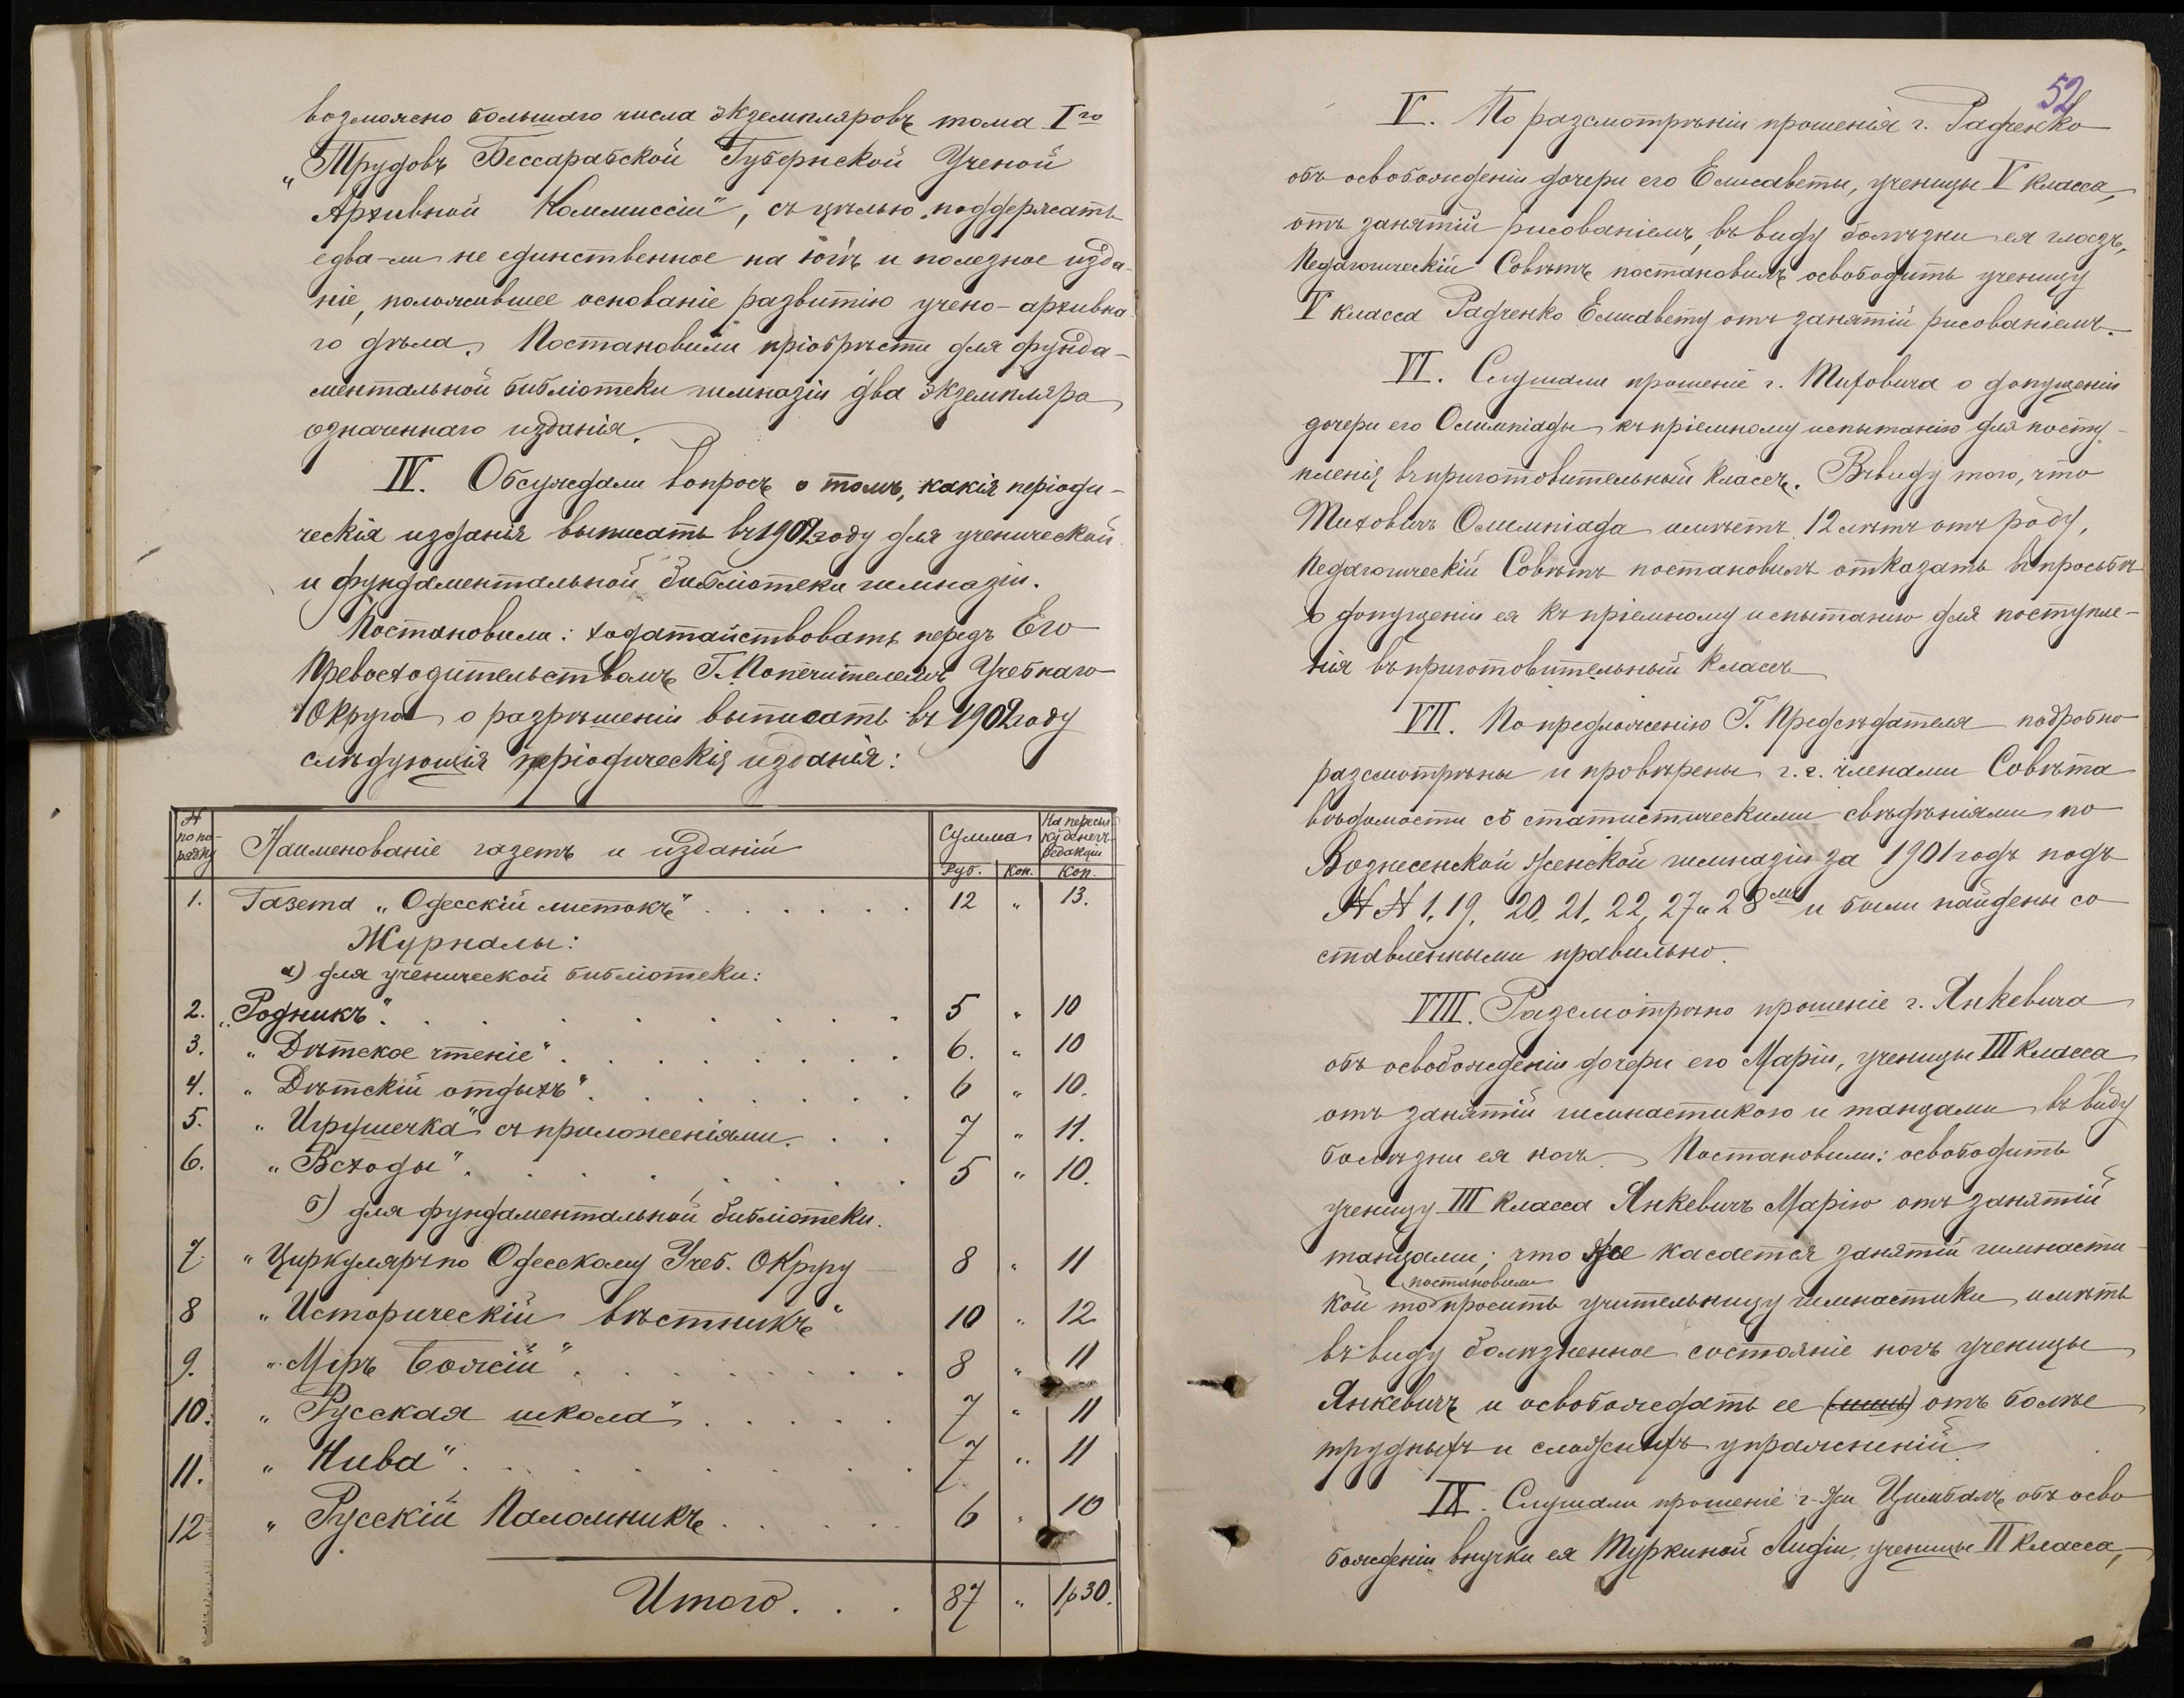 возможно большаго числа экземпляровъ тома Iго
„Трудовъ Бессарабской Губернской Ученой
Архивной Коммиссіи", съ цѣлью поддержать
едва-ли не единственное на югѣ и полезное изда-
ніе, положившее основаніе развитію учено-архивна-
го дѣла. Постановили пріобрѣсти для фунда-
ментальной библіотеки гимназіи два экземпляра
означеннаго изданія.
IV. Обсуждали вопросъ о томъ, какія періоди-
ческія изданія выписать въ 1902 году для ученической
и фундаментальной библіотеки гимназіи.
Постановили: ходатайствовать передъ Его
Превосходительствомъ Г. Попечителемъ Учебнаго
Округа о разрѣшеніи выписать въ 1902 году
слѣдующія періодическія изданія:
№ по по-рядку | Наименованіе газетъ и изданій | Сумма | На пересыл-ку денегъ редакціи
Руб. | Коп. | Коп.
1. Газета „Одесскій листокъ" . . . . . . 12 „ 13.
Журналы:
а) для ученической библіотеки:
2. „Родникъ" . . . . . . . . . 5 „ 10
3. „Дѣтское чтеніе" . . . . . . . . 6. „ 10
4. „Дѣтскій отдыхъ" . . . . . . . 6 „ 10.
5. „Игрушечка" съ приложеніями . . . 7 „ 11.
6. „Всходы" . . . . . . . . 5 „ 10.
б) для фундаментальной библіотеки.
7. „Циркуляръ по Одесскому Учеб. Округу — 8 „ 11
8 „Историческій вѣстникъ" 10 „ 12
9. „Міръ Божій" . . . . . . . . 8 „ 11
10. „Русская школа" . . . . . 7 „ 11
11. „Нива" . . . . . . . . . 7 „ 11
12 „Русскій Паломникъ . . . . . 6 „ 10
Итого . . . 87 „ 1р30.
52
V. По разсмотрѣніи прошенія г. Радченко
объ освобожденіи дочери его Елисаветы, ученицы V класса,
отъ занятій рисованіемъ, въ виду болѣзни ея глазъ,
Педагогическій Совѣтъ постановилъ освободить ученицу
V класса Радченко Елисавету отъ занятій рисованіемъ.
VI. Слушали прошеніе г. Миховича о допущеніи
дочери его Олимпіады къ пріемному испытанію для посту-
пленія въ приготовительный классъ. Въ виду того, что
Миховичъ Олимпіада имѣетъ 12 лѣтъ отъ роду,
Педагогическій Совѣтъ постановилъ отказать въ просьбѣ
о допущеніи ея къ пріемному испытанію для поступле-
нія въ приготовительный классъ
VII. По предложенію Г. Предсѣдателя подробно
разсмотрѣны и провѣрены г.г. членами Совѣта
вѣдомости съ статистическими свѣдѣніями по
Вознесенской женской гимназіи за 1901 годъ подъ
№№ 1, 19, 20, 21, 22, 27 и 28мъ и были найдены со
ставленными правильно.
VIII. Разсмотрѣно прошеніе г. Янкевича
объ освобожденіи дочери его Маріи, ученицы III класса
отъ занятій гимнастикою и танцами въ виду
болѣзни ея ногъ. Постановили: освободить
ученицу III класса Янкевичъ Марію отъ занятій
танцами; что же касается занятій гимнасти-
постановили
кой то просить учительницу гимнастики имѣть
въ виду болѣзненное состояніе ногъ ученицы
Янкевичъ и освобождать ее (лишь) отъ болѣе
трудныхъ и сложныхъ упражненій
IX. Слушали прошеніе г-жи Цимбалъ объ осво
божденіи внучки ея Туркиной Лидіи, ученицы II класса,